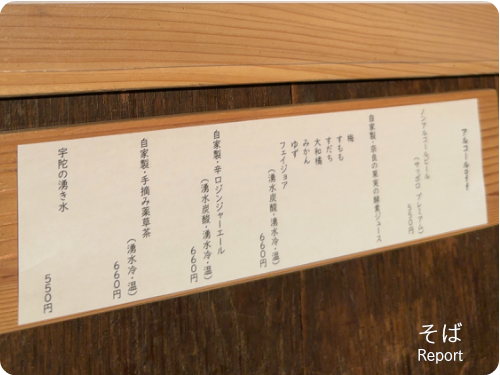 ノンアルコールビール
（サッポロ プレミアム）
550円
自家製・奈良の果実の酵素ジュース
梅
すもも
すだち
大和橘
みかん
ゆず
フェイジョア
（湧水炭酸・湧水冷・温）
660円
自家製・辛口ジンジャーエール
（湧水炭酸・湧水冷・温）
660円
自家製・手摘み薬草茶
（湧水冷・温）
660円
宇陀の湧き水
550円
そば
Report